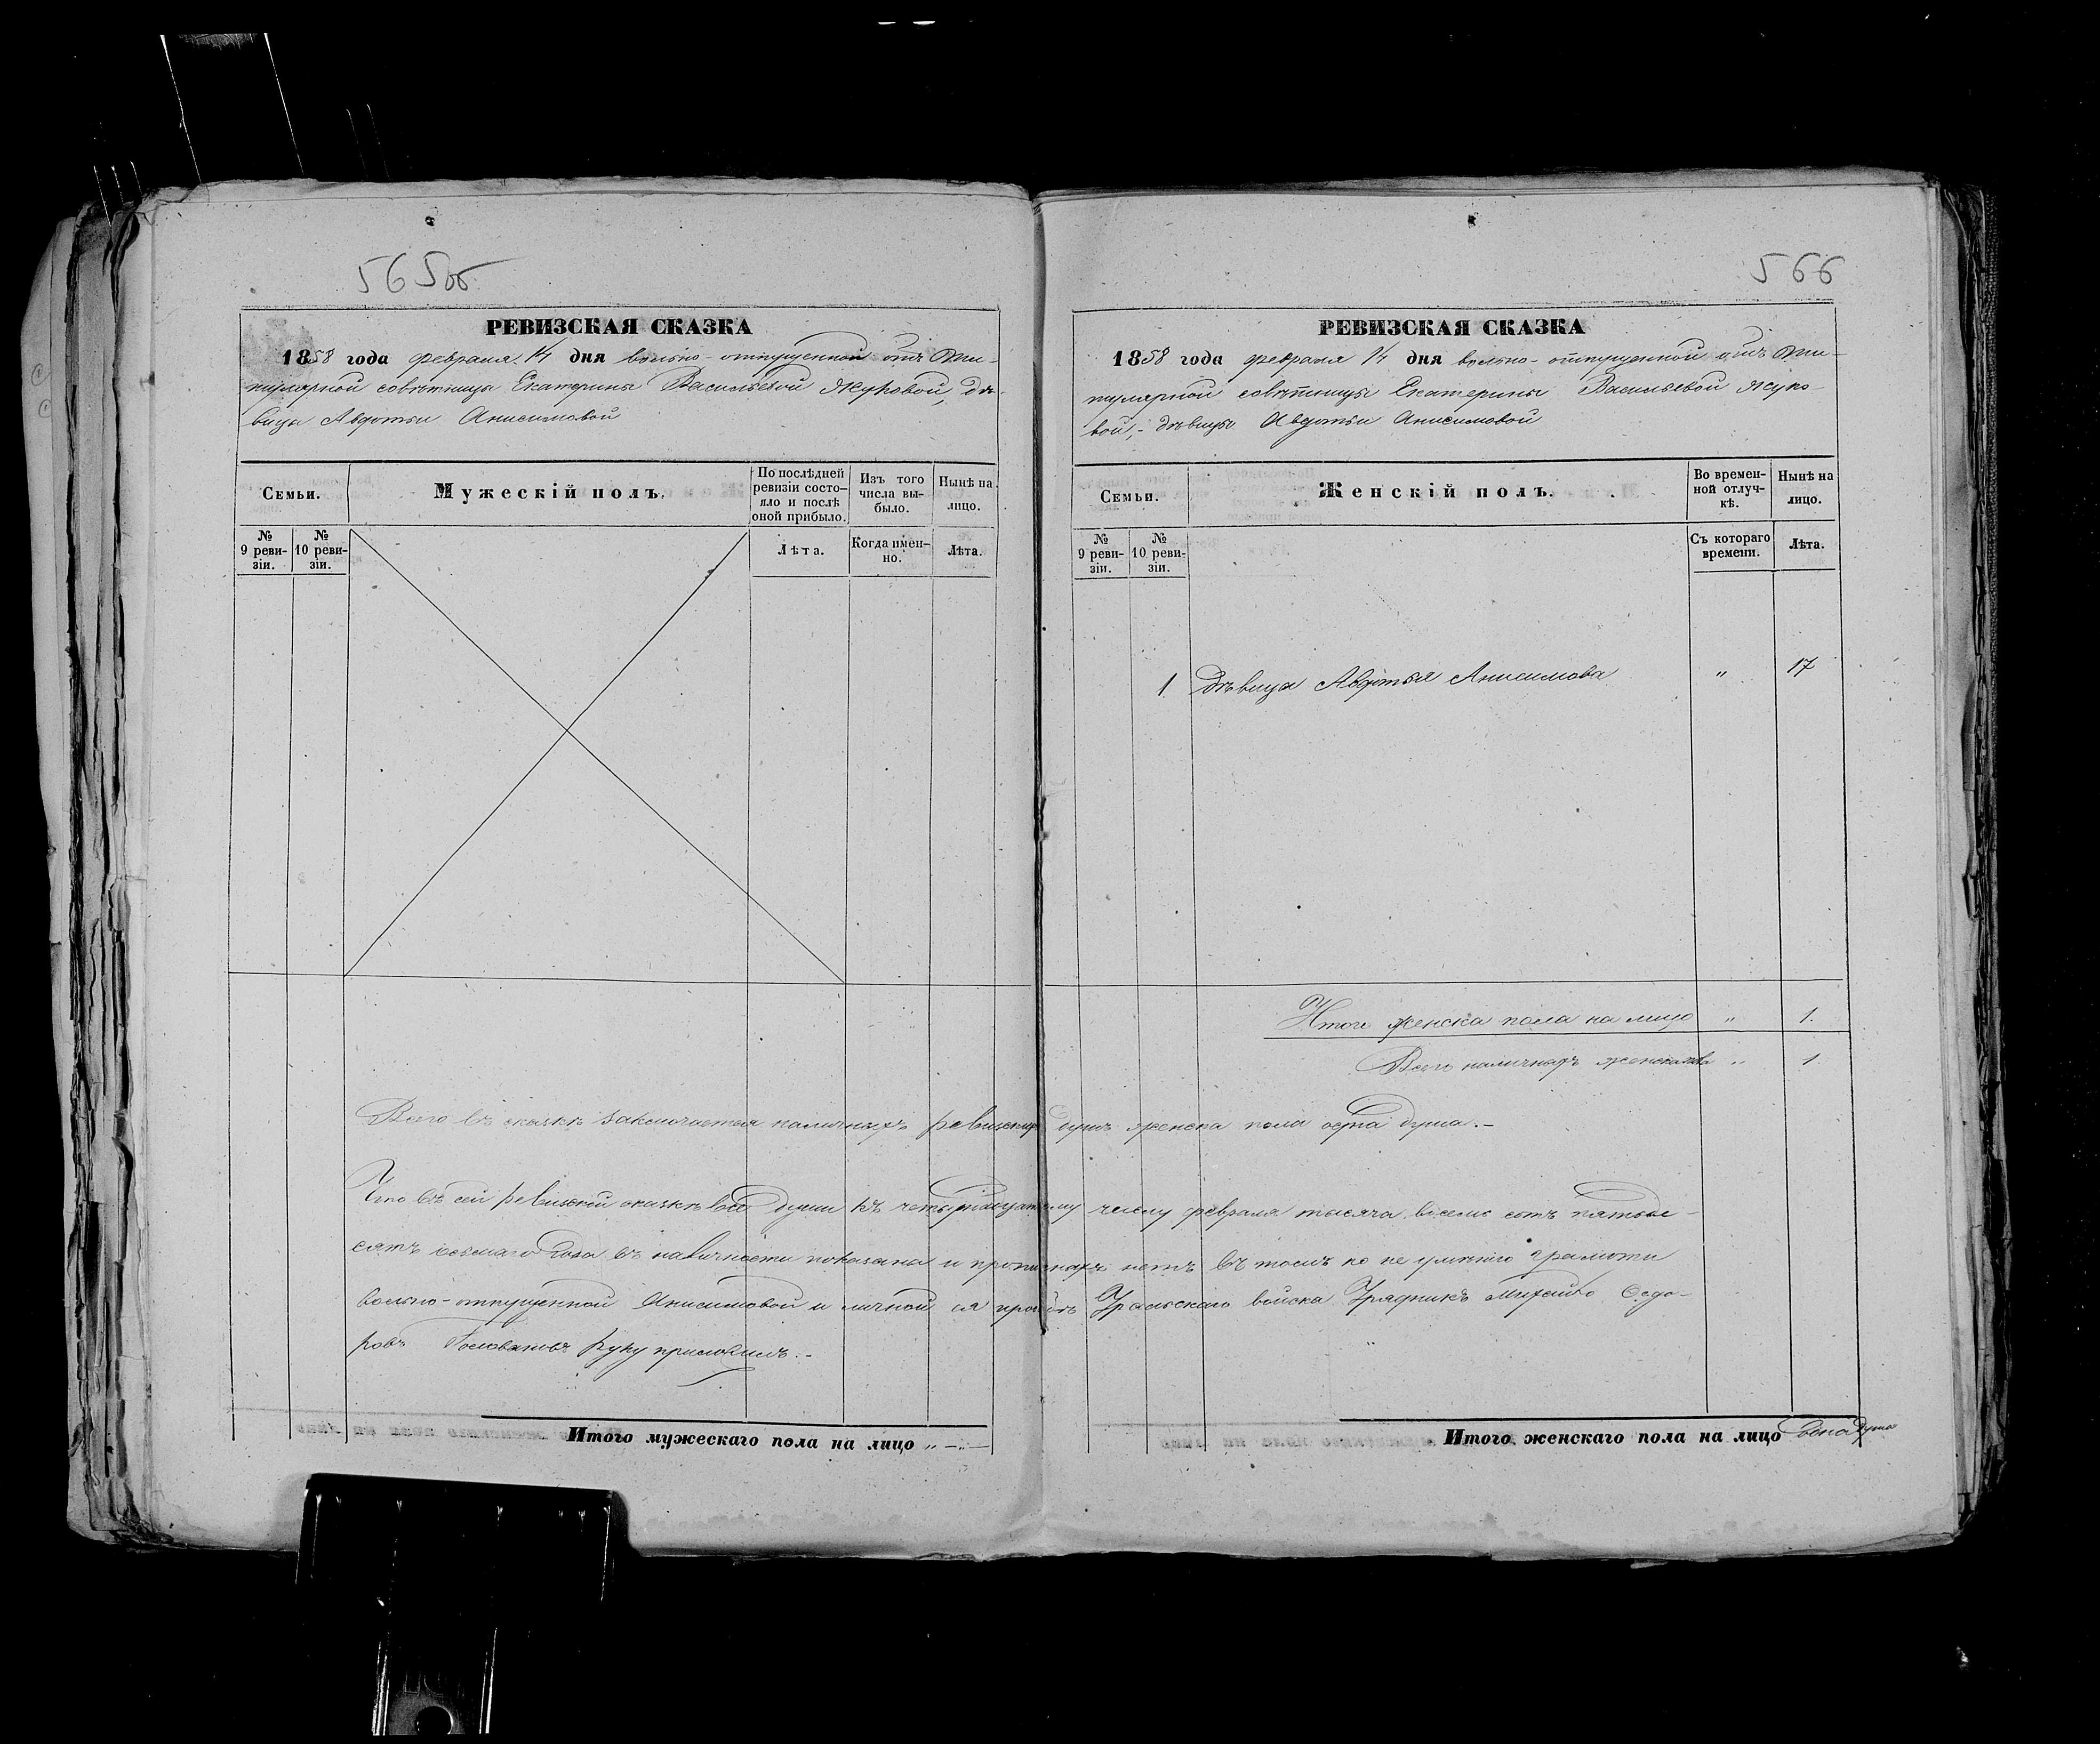 565об
РЕВИЗСКАЯ СКАЗКА
1858 года февраля 14 дня вольно-отпущенной отъ ти-
тулярной совѣтницы Екатерины Васильевой Жуковой, дѣ-
вицы Авдотьи Анисимовой
Семьи.
Мужескій полъ.
По послѣдней ревизіи состо-яло и послѣ оной прибыло.
Изъ того числа вы-было.
Нынѣ на лицо.
№ 9 реви-зіи.
№ 10 реви-зіи.
Лѣта.
Когда имен-но.
Лѣта.
566
РЕВИЗСКАЯ СКАЗКА
1858 года февраля 14 дня вольно-отпущенной отъ ти-
тулярной совѣтницы Екатерины Васильевой Жуко-
вой, - дѣвицы Авдотьи Анисимовой
Семьи.
Женскій полъ.
Во времен-ной отлуч-кѣ.
Нынѣ на лицо.
№ 9 реви-зіи.
№ 10 реви-зіи.
Съ котораго времени.
Лѣта.
1 Дѣвица Авдотья Анисимова " 17
Итого женска пола на лицо " 1.
Всего наличныхъ " 1.
Всего въ сказкѣ заключается наличныхъ ревизскихъ душъ женска пола одна душа.-
Что въ сей ревизской сказкѣ всѣ души къ четырнадцатому числу февраля тысяча восемь сотъ пятьде-
сятъ осьмаго года въ наличности показана и прописныхъ нетъ въ томъ по не умѣнію грамоти
вольно-отпущенной Анисимовой и личной ея прозьбѣ Уральскаго войска Урядникъ Михайло Федо-
ровъ Головановъ руку приложилъ.-
Итого мужескаго пола на лицо " - " -
Итого женскаго пола на лицо одна душа